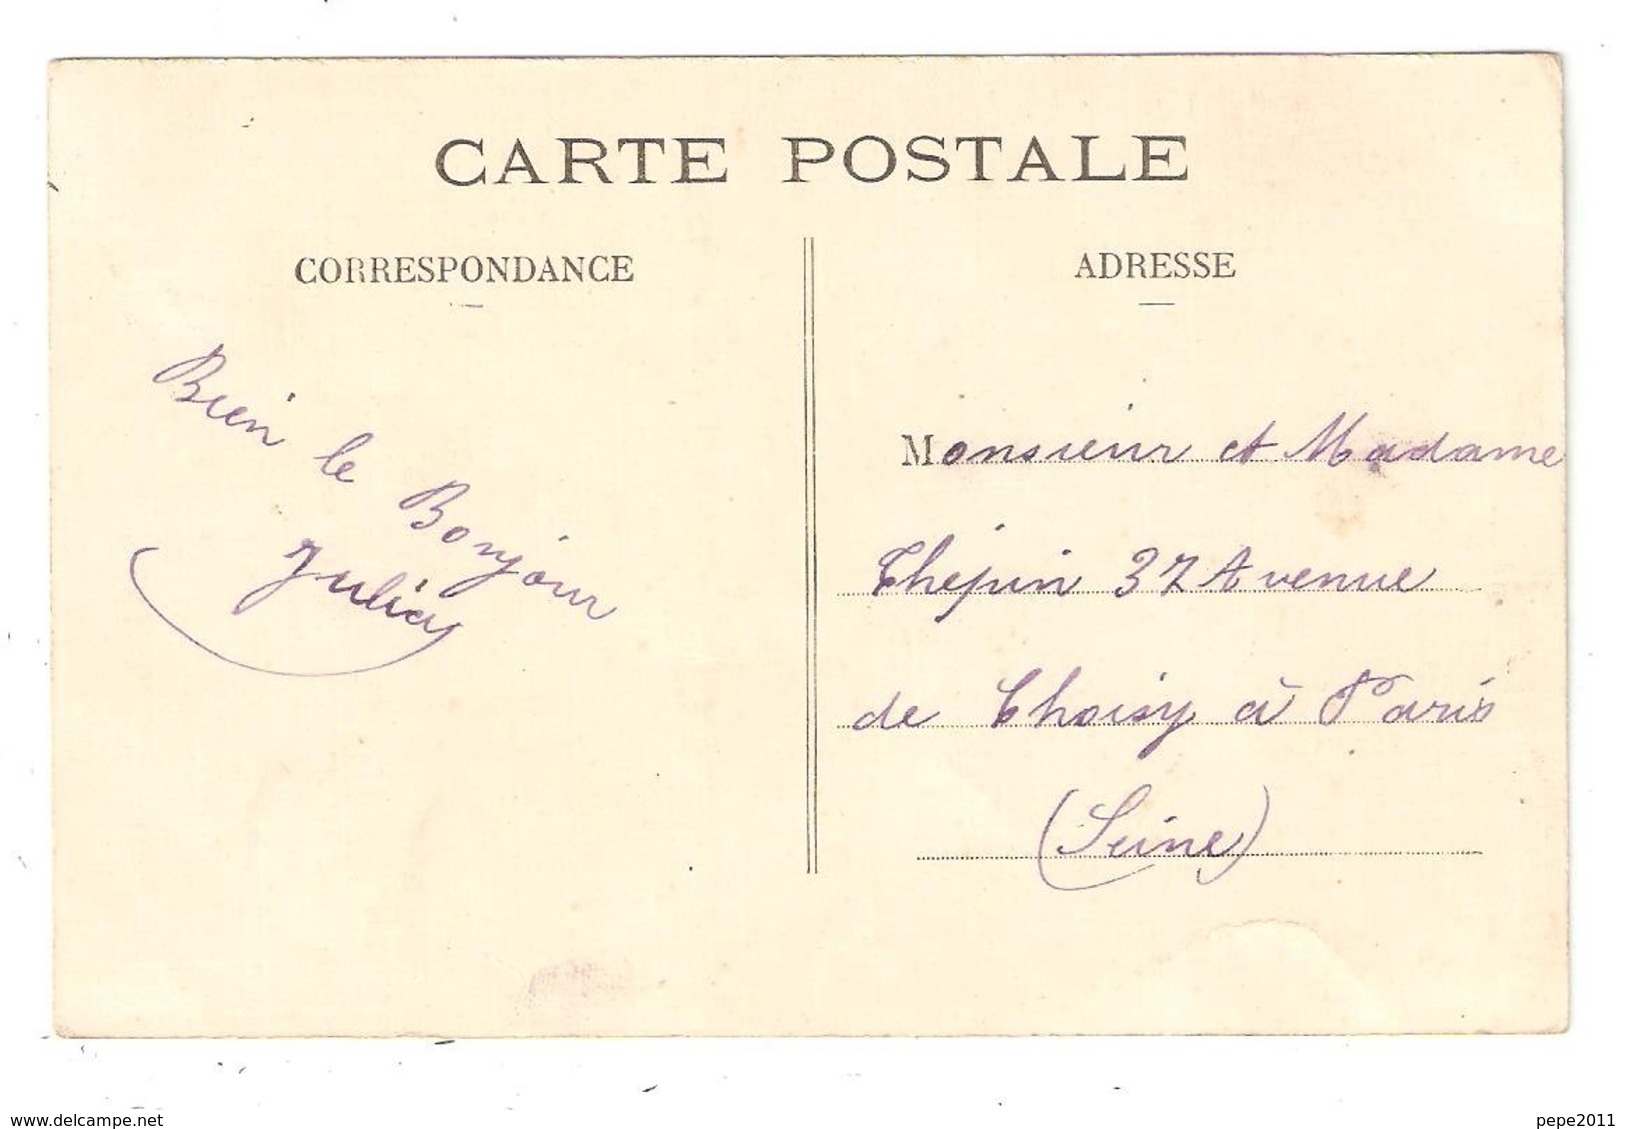 CARTE POSTALE
CORRESPONDANCE
Bien le Bonjour
Julia
ADRESSE
Monsieur et Madame
Thépin 37 Avenue
de Choisy à Paris
(Seine)
www.delcampe.net
pepe2011